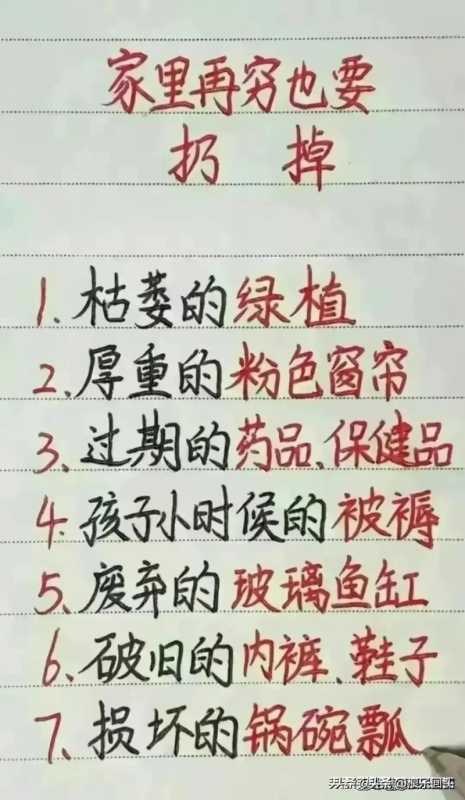 家里再穷也要
扔 掉
1.枯萎的绿植
2、厚重的粉色窗帘
3、过期的药品、保健品
4.孩子小时候的被褥
5、废弃的玻璃鱼缸
6、破旧的内裤、鞋子
7、损坏的锅碗瓢